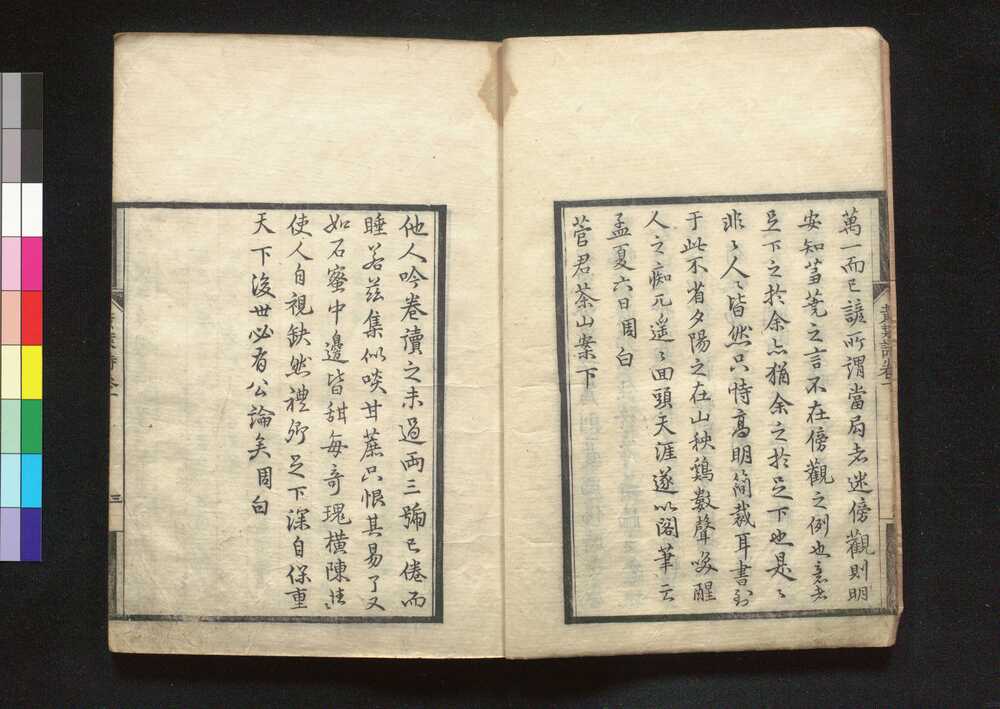 萬一而已諺所謂當局者迷傍觀則明
安知蒭蕘之言不在傍觀之例也意者
足下之於余亦猶余之於足下也是〻
非〻人〻皆然只恃高明簡裁耳書到
于此不省夕陽之在山秧鷄數聲喚醒
人之痴兀遙〻回頭天涯遂以閣筆云
孟夏六日周白
菅君茶山案下
他人吟卷讀之未過兩三號已倦而
睡若玆集似啖甘蔗只恨其易了又
如石蜜中邊皆甜每奇瑰橫陳
使人自視缺然禮卿足下深自保重
天下後世必有公論矣周白
黃葉詩卷一
三